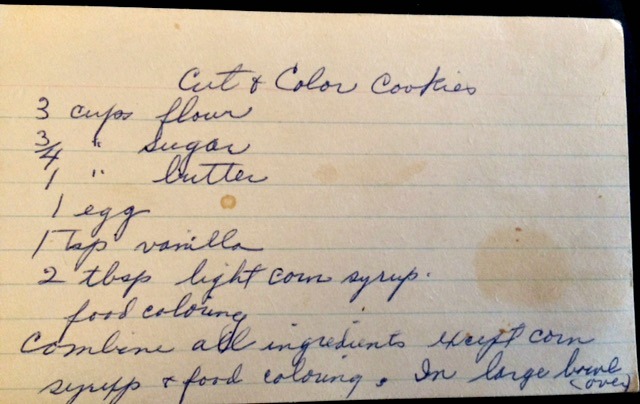 Cut & Color Cookies
3 cups flour
3/4 " sugar
1 " butter
1 egg
1 Tsp vanilla
2 tbsp light corn syrup.
food coloring
Combine all ingredients except corn
syrupp & food coloring. In large bowl
(over)